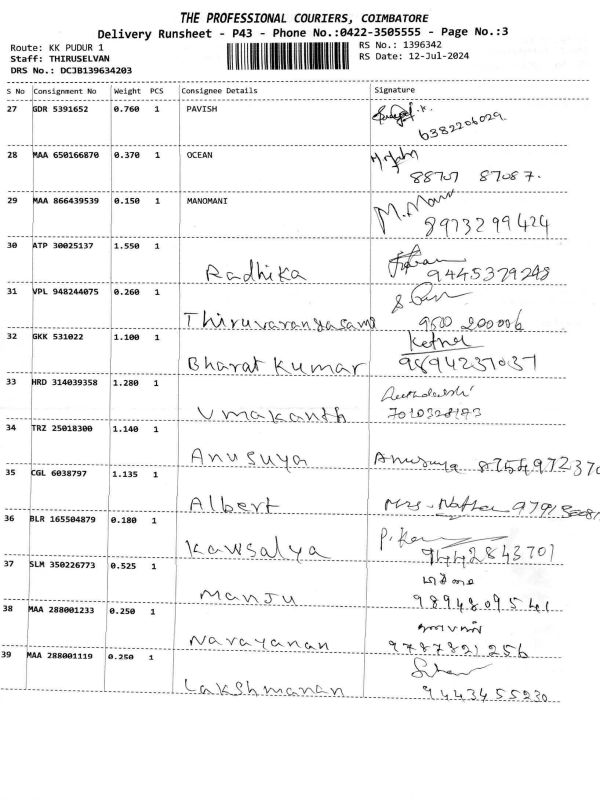 THE PROFESSIONAL COURIERS, COIMBATORE
Delivery Runsheet - P43 - Phone No.:0422-3505555 - Page No.:3
Route: KK PUDUR 1
RS No.: 1396342
Staff: THIRUSELVAN
RS Date: 12-Jul-2024
DRS No.: DCJB139634203
S No Consignment No Weight PCS Consignee Details Signature
27 GDR 5391652 0.760 1 PAVISH
6382206029
28 MAA 650166870 0.370 1 OCEAN
88707 87087.
29 MAA 866439539 0.150 1 MANOMANI M. Mano
8973299424
30 ATP 30025137 1.550 1
Radhika 9445379248
31 VPL 948244075 0.260 1
Thiruvarangasamy 9500 200006
32 GKK 531022 1.100 1
Bharat Kumar 9894237037
33 HRD 314039358 1.280 1
Umakanth 7010328193
34 TRZ 25018300 1.140 1
Anusuya Anusuya
35 CGL 6038797 1.135 1
Albert Mrs.
36 BLR 165504879 0.180 1
Kawsalya 7442843701
37 SLM 350226773 0.525 1
Manju 9894809541
38 MAA 288001233 0.250 1
Narayanan 9787821256
39 MAA 288001119 0.250 1
Lakshmanan 9443455230